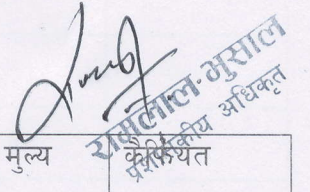 रामलाल भुसाल
प्रशासकीय अधिकृत
मुल्य कैफियत